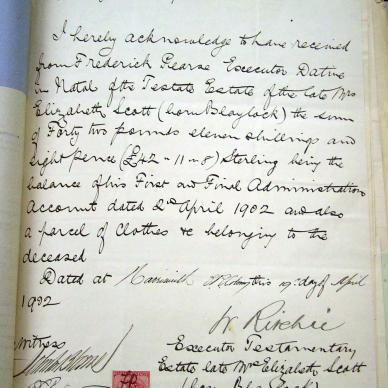 I hereby acknowledge to have received
from Frederick Pearse Executor Dative
in Natal of the Testate Estate of the late Mrs
Elizabeth Scott (born Blaylock) the sum
of Forty two pounds eleven shillings and
eight pence (£42-11-8) Sterling being the
balance of his First and Final Administration
Account dated 2nd April 1902 and also
a parcel of Clothes &c belonging to the
deceased
Dated at this 19th day of April
1902
W Ritchie
Witness
Executor Testamentary
Estate late Mrs Elizabeth Scott